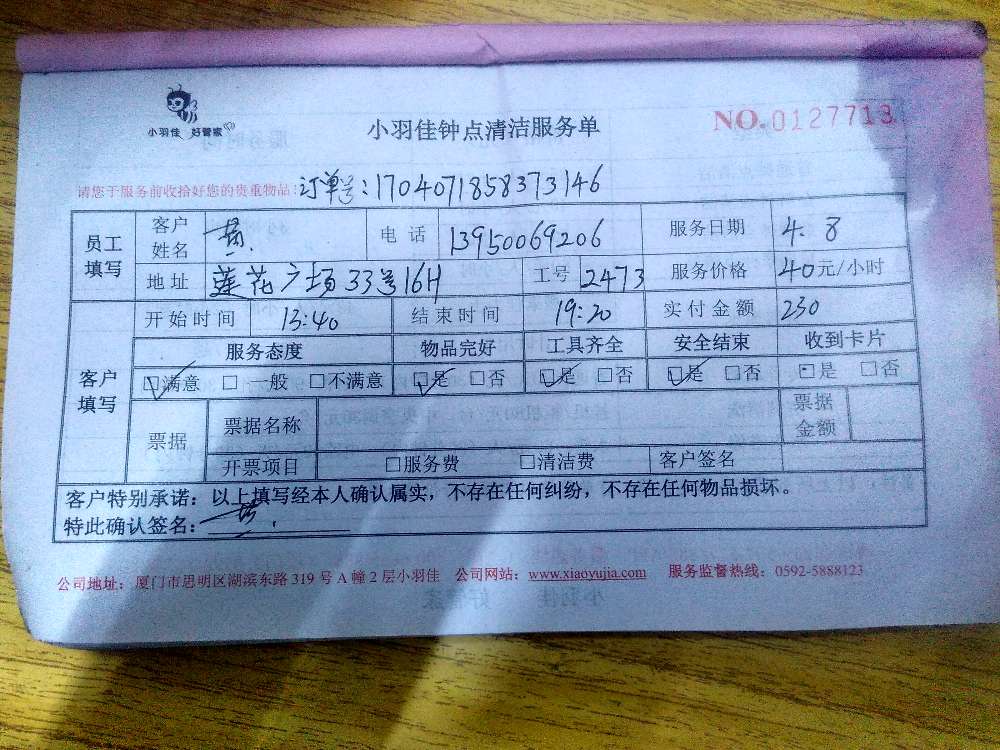 小羽佳 好管家
小羽佳钟点清洁服务单
NO.0127713
请您于服务前收拾好您的贵重物品! 订单号:1704071858373146
员工填写 客户姓名 电话 13950069206 服务日期 4.8
地址 莲花广场33号16H 工号 2473 服务价格 40元/小时
客户填写 开始时间 13:40 结束时间 19:20 实付金额 230
服务态度 物品完好 工具齐全 安全结束 收到卡片
☑满意 □一般 □不满意 ☑是 □否 ☑是 □否 ☑是 □否 □是 □否
票据 票据名称 票据金额
开票项目 □服务费 □清洁费 客户签名
客户特别承诺:以上填写经本人确认属实,不存在任何纠纷,不存在任何物品损坏。
特此确认签名:
公司地址:厦门市思明区湖滨东路 319 号 A 幢 2 层小羽佳 公司网站:www.xiaoyujia.com 服务监督热线:0592-5888123